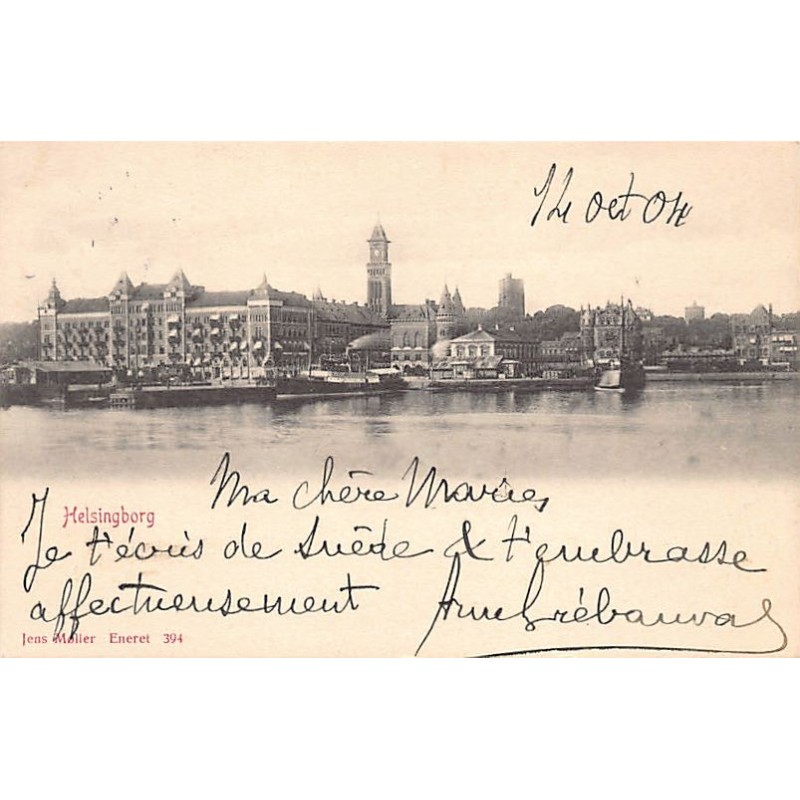 12 oct 04
Ma chère Marie,
Helsingborg
Je t'écris de Suède & t'embrasse
affectueusement
Jens Møller Eneret 394